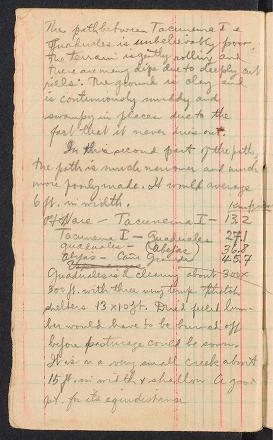 The path between Tacunema I &
Guaduales is unbelievably poor.
The terrain is gently rolling and
there are many dips due to deeply cut
rills. The ground is clay and
is continuously muddy and
swampy in places due to the
fact that it never dries out.
In this second part of the path,
the path is much narrower and much
more poorly made. It would average
6 ft. in width.
Pt Nare - Tacunema I - 13.2
Tacunema I - Guaduales 27.1
Guaduales - Abejas 36.8
Abejas - Caño Grande 45.7
Guaduales is a clearing about 300 x
300 ft. with three very temp. thatch
shelters 13 x 10 ft. Dried felled lum-
ber would have to be burned off
before pasturage could be sown.
It is on a very small creek about
15 ft. in width & shallow. A good
pt. for its equidistance